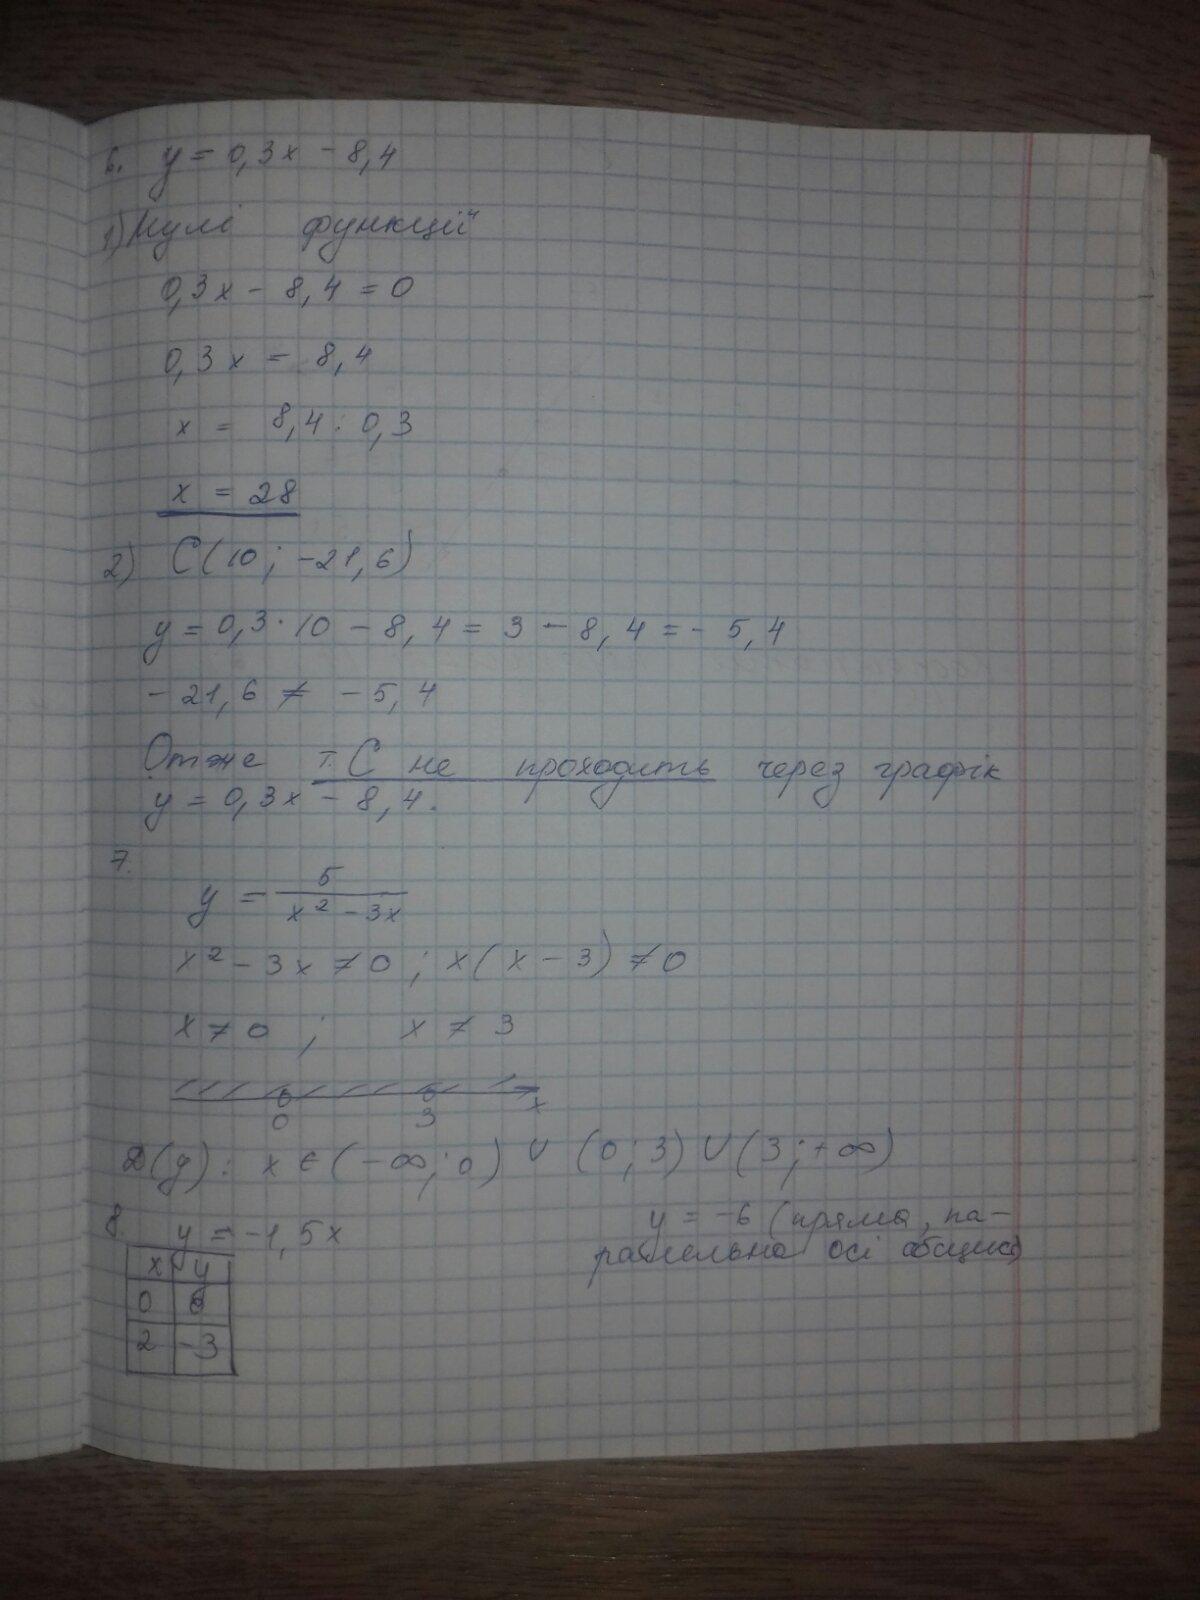 6. y = 0,3x - 8,4
1) Нулі функції
0,3x - 8,4 = 0
0,3x = 8,4
x = 8,4 : 0,3
x = 28
2) C(10; -21,6)
y = 0,3·10 - 8,4 = 3 - 8,4 = - 5,4
-21,6 ≠ -5,4
Отже т. С не проходить через графік
y = 0,3x - 8,4.
7.
y = 5/(x² - 3x)
x² - 3x ≠ 0 ; x(x - 3) ≠ 0
x ≠ 0 ; x ≠ 3
0 3 x
D(y): x ∈ (-∞; 0) ∪ (0; 3) ∪ (3; +∞)
8. y = -1,5x
x y
0 0
2 -3
y = -6 (пряма, па-
ралельна осі абсцис)